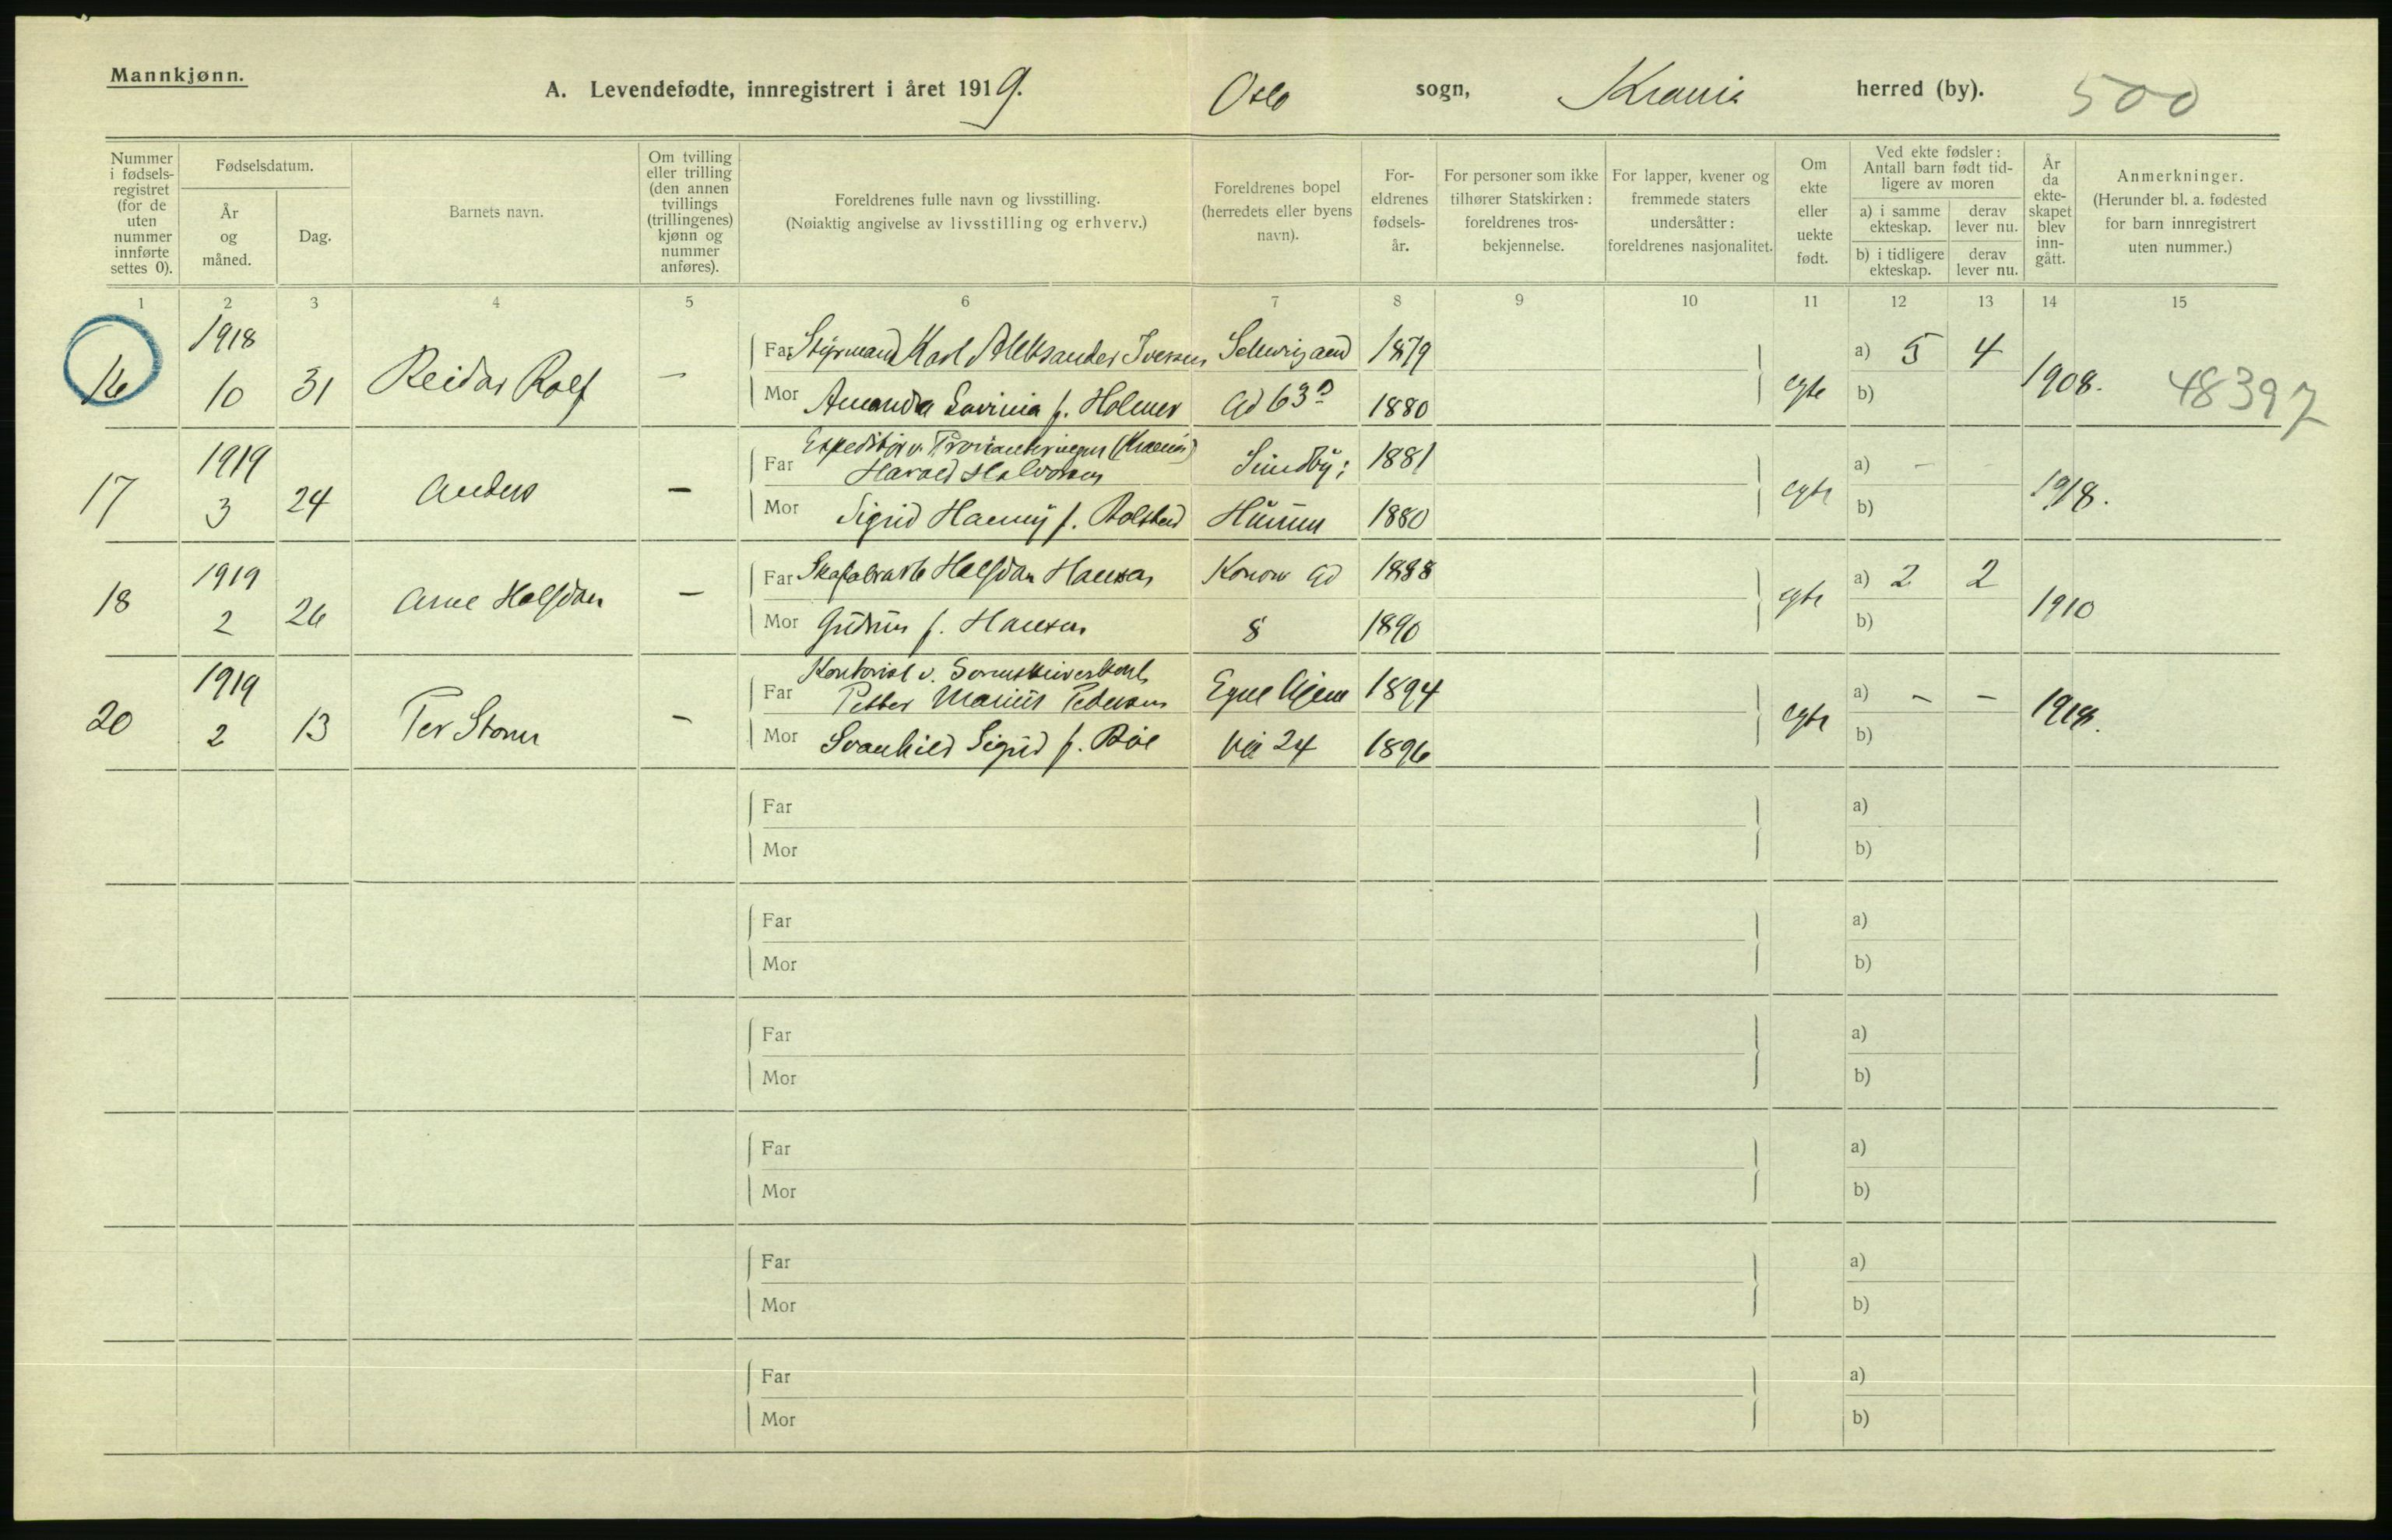 Mannkjønn.
A. Levendefødte, innregistrert i året 1919. Oslo sogn, Krania herred (by). 500
Nummer i fødsels-registret (for de uten nummer innførte settes 0).
Fødselsdatum.
År og måned.
Dag.
Barnets navn.
Om tvilling eller trilling (den annen tvillings (trillingenes) kjønn og nummer anføres).
Foreldrenes fulle navn og livsstilling.
(Nøiaktig angivelse av livsstilling og erhverv.)
Foreldrenes bopel (herredets eller byens navn).
For-eldrenes fødsels-år.
For personer som ikke tilhører Statskirken: foreldrenes tros-bekjennelse.
For lapper, kvener og fremmede staters undersåtter: foreldrenes nasjonalitet.
Om ekte eller uekte født.
Ved ekte fødsler: Antall barn født tid-ligere av moren
a) i samme ekteskap.
derav lever nu.
b) i tidligere ekteskap.
derav lever nu.
År da ekte-skapet blev inn-gått.
Anmerkninger.
(Herunder bl. a. fødested for barn innregistrert uten nummer.)
1 2 3 4 5 6 7 8 9 10 11 12 13 14 15
1918 Far Styrmand Karl Aleksander Iversen 1879 a) 5 4
16 10 31 Reidar Rolf — egte 1908. 48397
Mor Amanda Lovinia f. Holmer Gd 63 1880 b)
1919 Far Harald Halvorsen 1881 a) —
17 3 24 Anders — egte 1918.
Mor Sigrid f. Rolstad 1880 b)
1919 Far Halfdan Hansen Konow Gd 1888 a) 2 2
18 2 26 Arne Halfdan — egte 1910
Mor Gudrun f. Hansen 8 1890 b)
Kontorist v.
1919 Far Petter Marius Pedersen Egne Hjem 1894 a) — —
20 2 13 Per Storm — egte 1918.
Mor Svanhild Sigrid f. Böe vei 24 1896 b)
Far a)
Mor b)
Far a)
Mor b)
Far a)
Mor b)
Far a)
Mor b)
Far a)
Mor b)
Far a)
Mor b)